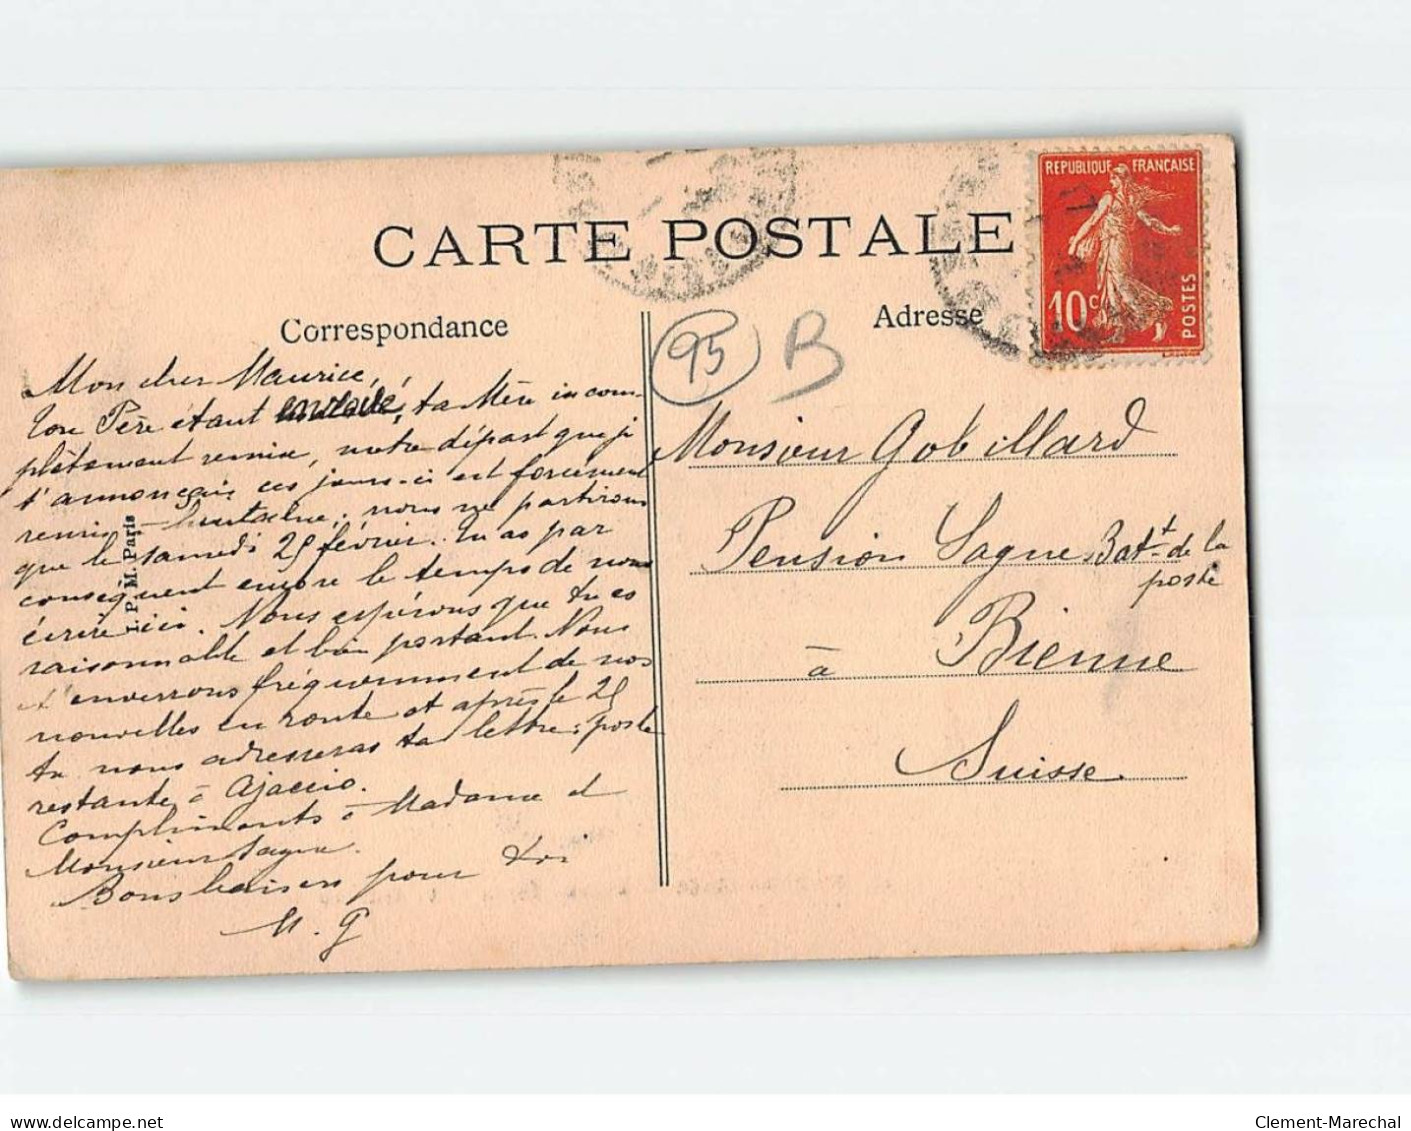 CARTE POSTALE
REPUBLIQUE FRANÇAISE
10c
POSTES
Correspondance
Adresse
95
B
Mon cher Maurice,
Ton Père étant ta Mère incom-
plètement remise, notre départ que je
t'annonçais ces jours-ci est forcément
remis nous ne partirons
que le samedi 25 février. Tu as par
conséquent encore le temps de nous
écrire ici. Nous espérons que tu es
raisonnable et bien portant. Nous
t'enverrons fréquemment de nos
nouvelles en route et après le 25
tu nous adresseras ta lettre: poste
restante à Ajaccio.
Compliments à Madame et
Monsieur Sagne.
Bons baisers pour toi
M. G
P. M. Paris
Monsieur Gobillard
Pension Sagne Bat.t de la
poste
à Bienne
Suisse
delcampe.net
Clement-Marechal